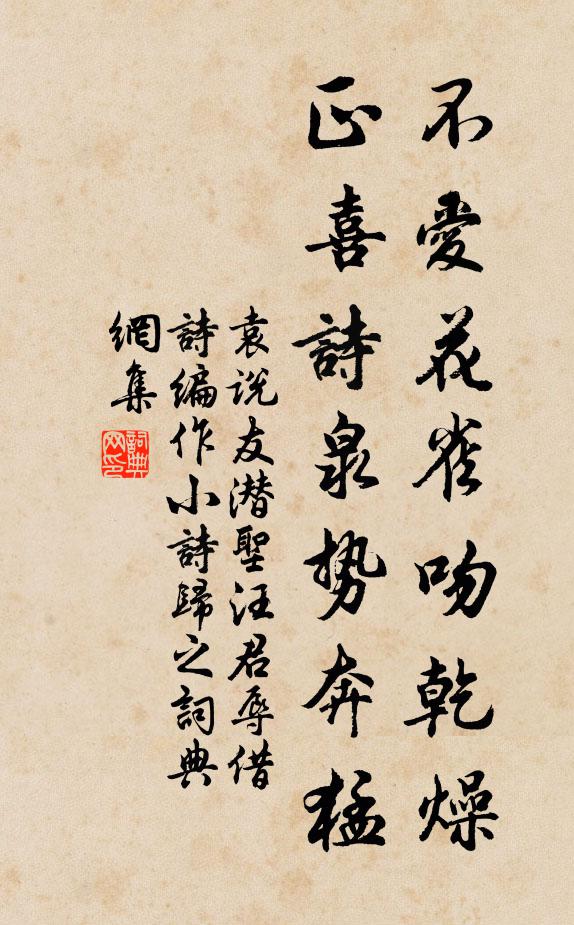 不愛花雀吻乾燥
正喜詩泉勢奔猛
袁说友潜聖汪君辱借
詩编作小詩歸之詞典
網集
詞典
网印